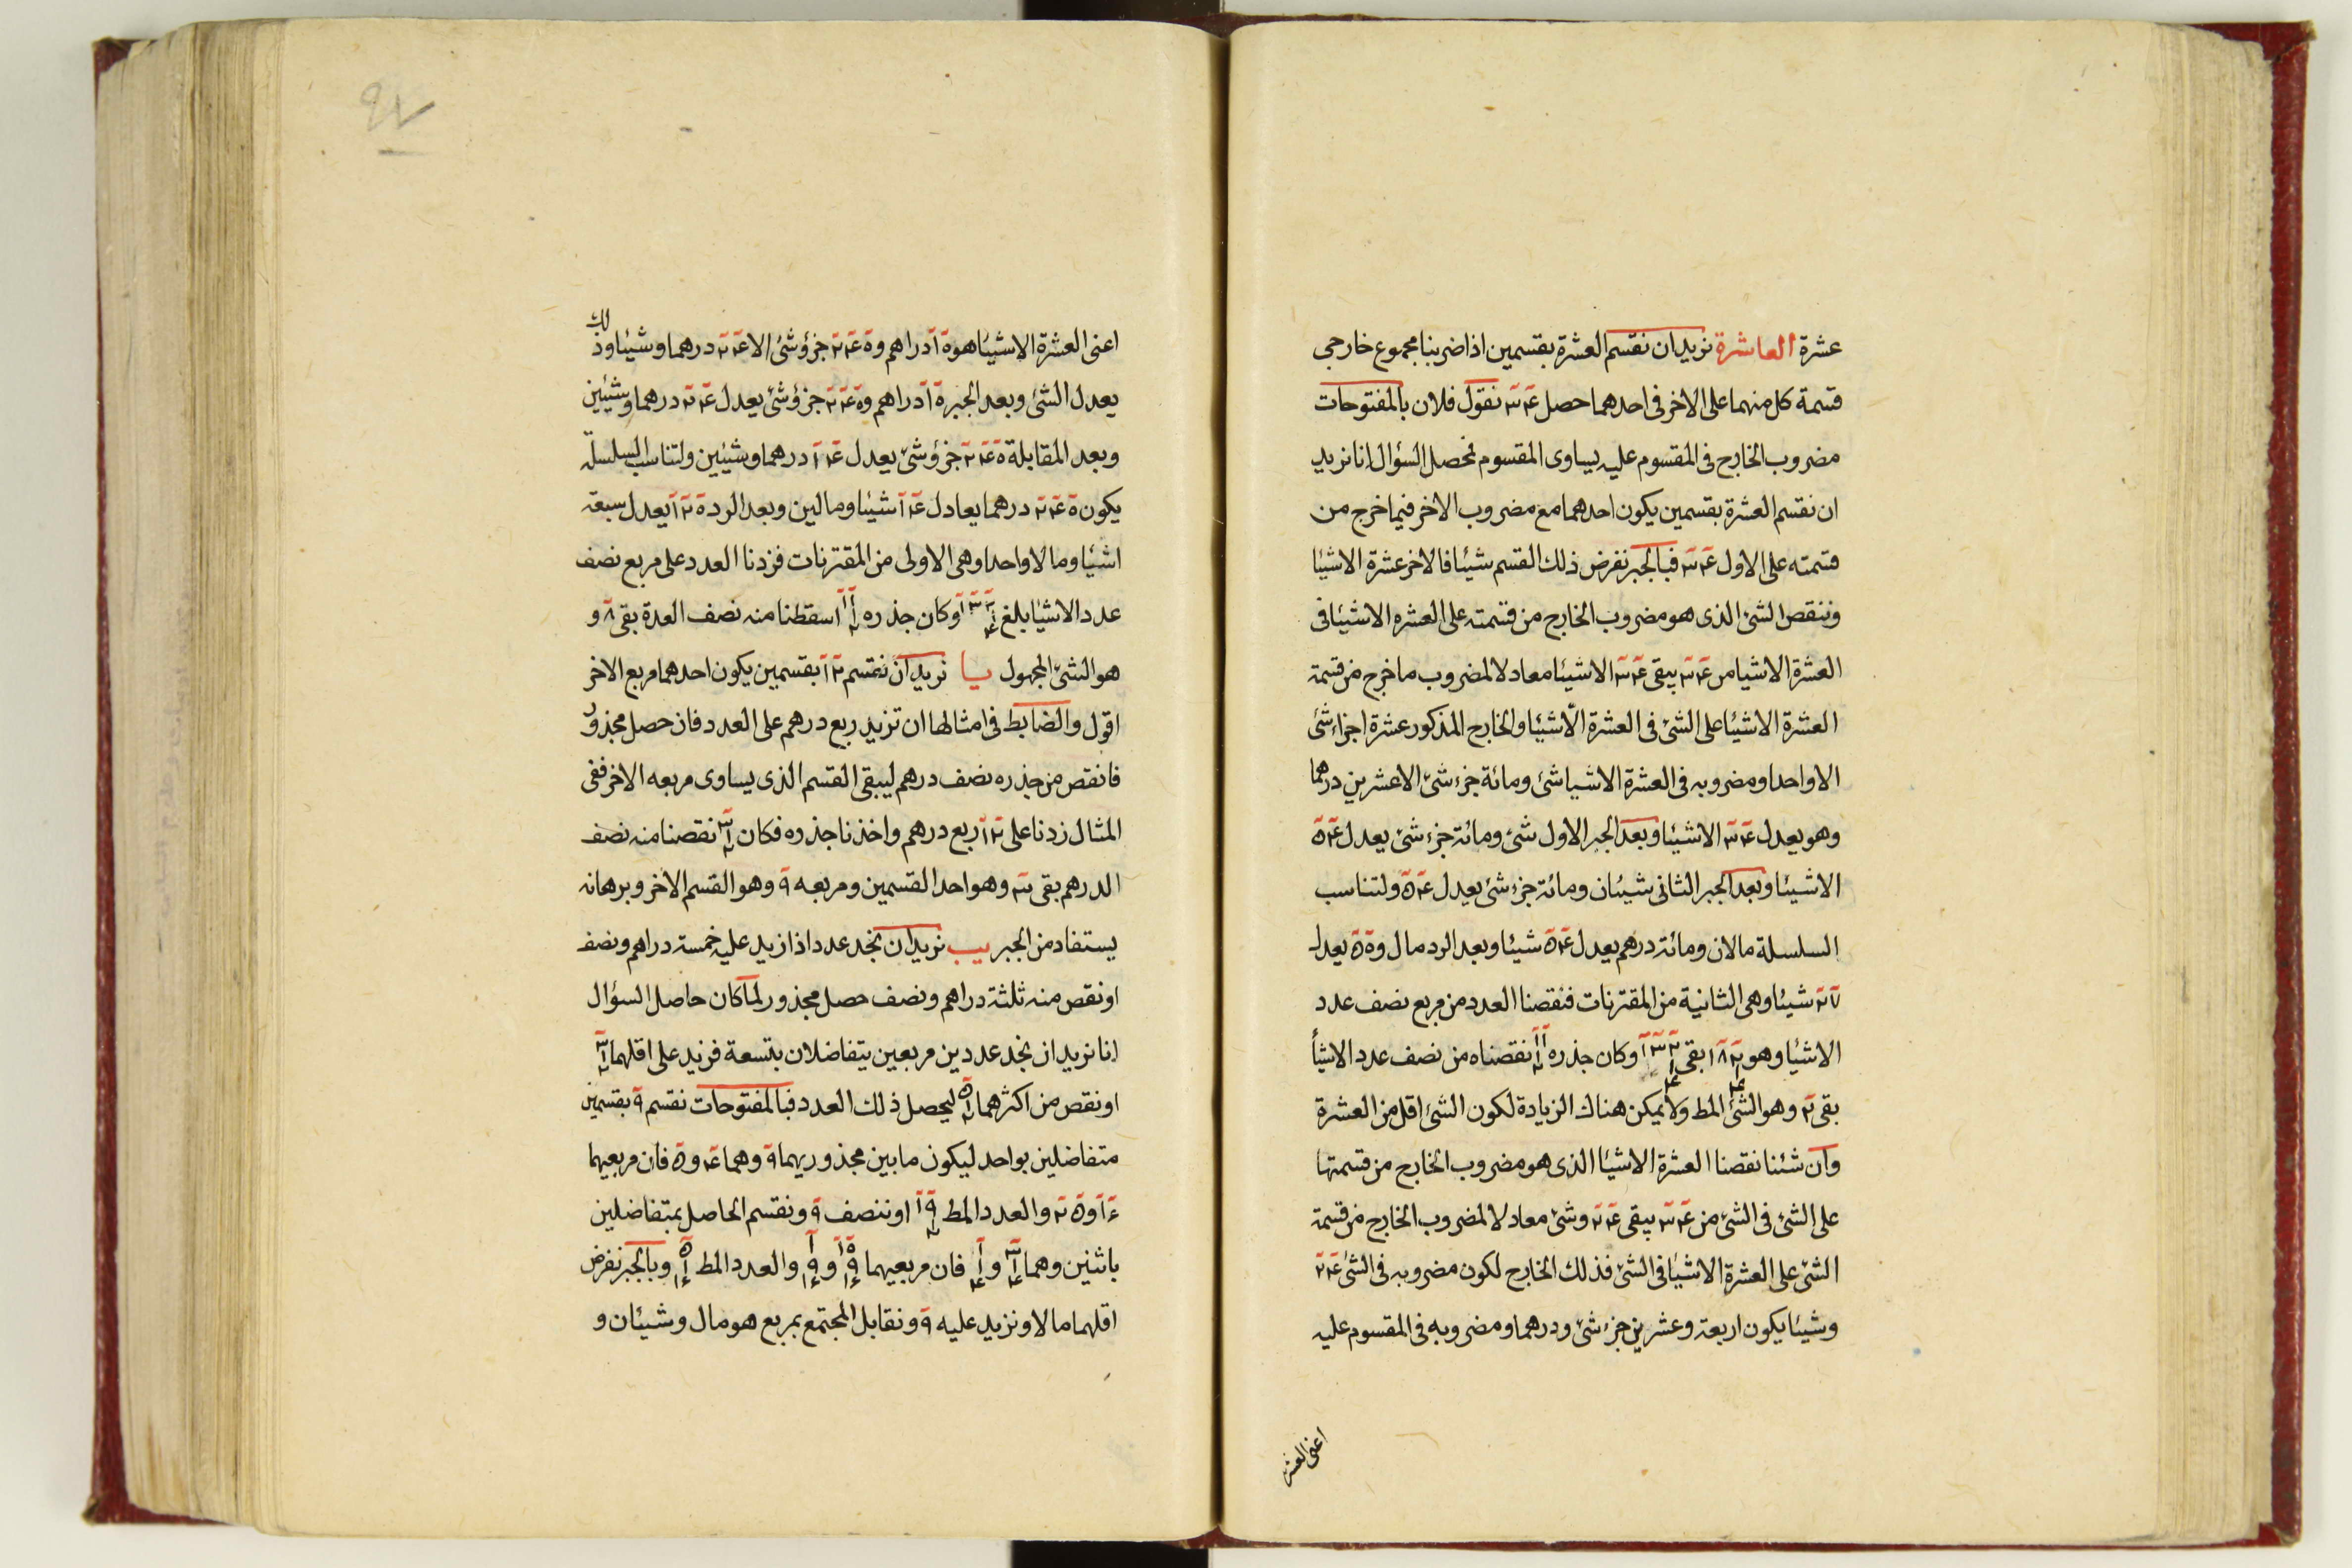 عشرة العاشرة نريد ان نقسم العشرة بقسمين اذا ضربنا مجموع خارجي
قسمة كل منهما على الاخر فى احدهما حصل ٣٤ نقول فلان بالمفتوحات
مضروب الخارج فى المقسوم عليه يساوى المقسوم فمحصل السؤال انا نريد
ان نقسم العشرة بقسمين يكون احدهما مع مضروب الاخر فيما خرج من
قسمته على الاول ٣٤ فبالجبر نفرض ذلك القسم شيئا فالاخر عشرة الا شيئا
وننقص الشئ الذى هو مضروب الخارج من قسمته على العشره الا شيئا فى
العشرة الا شيا من ٣٤ يبقى ٣٤ الا شيئا معادلا لمضروب ما خرج من قسمة
العشرة الا شيئا على الشئ فى العشرة الا شيئا والخارج المذكور عشرة اجزاء شئ
الا واحدا ومضروبه فى العشرة الا شيا شئ ومائة جزء شئ الا عشرين درهما
وهو يعدل ٣٤ الا شيئا وبعد الجبر الاول شئ ومائة جزء شئ يعدل ٥٤
الا شيئا وبعد الجبر الثانى شيئان ومائة جزء شئ يعدل ٥٤ ولتناسب
السلسلة مالان ومائة درهم يعدل ٥٤ شيئا وبعد الرد مال و٥٠ يعدل
٢٧ شيئا وهى الثانية من المقترنات فنقصنا العدد من مربع نصف عدد
الاشيا وهو ١٨٢ ١/٤ بقى ١٣٢ ١/٤ وكان جذره ١١ ١/٢ نقصناه من نصف عدد الاشيأ
بقى ٢ وهو الشئ المط ولا يمكن هناك الزيادة لكون الشئ اقل من العشرة
وان شئنا نقصنا العشرة الا شيئا الذى هو مضروب الخارج من قسمتها
على الشئ فى الشئ من ٣٤ يبقى ٢٤ وشئ معادلا لمضروب الخارج من قسمة
الشئ على العشرة الا شيئا فى الشئ فذلك الخارج لكون مضروبه فى الشئ ٢٤
وشيئا يكون اربعة وعشرين جزء شئ ودرهما ومضروبه فى المقسوم عليه
اعنى العشر
٩٧
اعنى العشرة الا شيئا هو ١٥ دراهم و٢٤٠ جزؤ شئ الا ٢٤ درهما وشيئا وذلك
يعدل الشئ وبعد الجبر ١٥ دراهم و٢٤٠ جزؤ شئ يعدل ٢٤ درهما وشيئين
وبعد المقابلة ٢٤٠ جزؤ شئ يعدل ١٤ درهما وشيئين ولتناسب السلسلة
يكون ٢٤٠ درهما يعادل ١٤ شيئا ومالين وبعد الرد ١٢٠ يعدل سبعة
اشيا ومالا واحدا وهى الاولى من المقترنات فزدنا العدد على مربع نصف
عدد الاشيا بلغ ١٣٢ ١/٤ وكان جذره ١١ ١/٢ اسقطنا منه نصف العدة بقى ٨ و
هو الشئ المجهول يا نريد ان نقسم ١٢ بقسمين يكون احدهما مربع الاخر
اقول والضابط فى امثالها ان تزيد ربع درهم على العدد فان حصل مجذور
فانقص من جذره نصف درهم ليبقى القسم الذى يساوى مربعه الاخر ففى
المثال زدنا على ١٢ ربع درهم واخذنا جذره فكان ٣ ١/٢ نقصنا منه نصف
الدرهم بقى ٣ وهو احد القسمين ومربعه ٩ وهو القسم الاخر وبرهانه
يستفاد من الجبر يب نريد ان نجد عددا اذا زيد عليه خمسة دراهم ونصف
او نقص منه ثلثة دراهم ونصف حصل مجذور لما كان حاصل السؤال
انا نريد ان نجد عددين مربعين يتفاضلان بتسعة فزيد على اقلهما ٣ ١/٢
او نقص من اكثرهما ٥ ١/٢ ليحصل ذلك العدد فبالمفتوحات نقسم ٩ بقسمين
متفاضلين بواحد ليكون ما بين مجذوريهما ٩ وهما ٤ و٥ فان مربعيهما
١٦ و٢٥ والعدد المط ١٩ ١/٢ او ننصف ٩ ونقسم الحاصل بمتفاضلين
باثنين وهما ٣ ١/٤ و١ ١/٤ فان مربعيهما ١٠ ٩/١٦ و١ ٩/١٦ والعدد المط ٥ ١/١٦ وبالجبر نفرض
اقلهما مالا ونزيد عليه ٩ ونقابل المجتمع بمربع هو مال وشيئان و